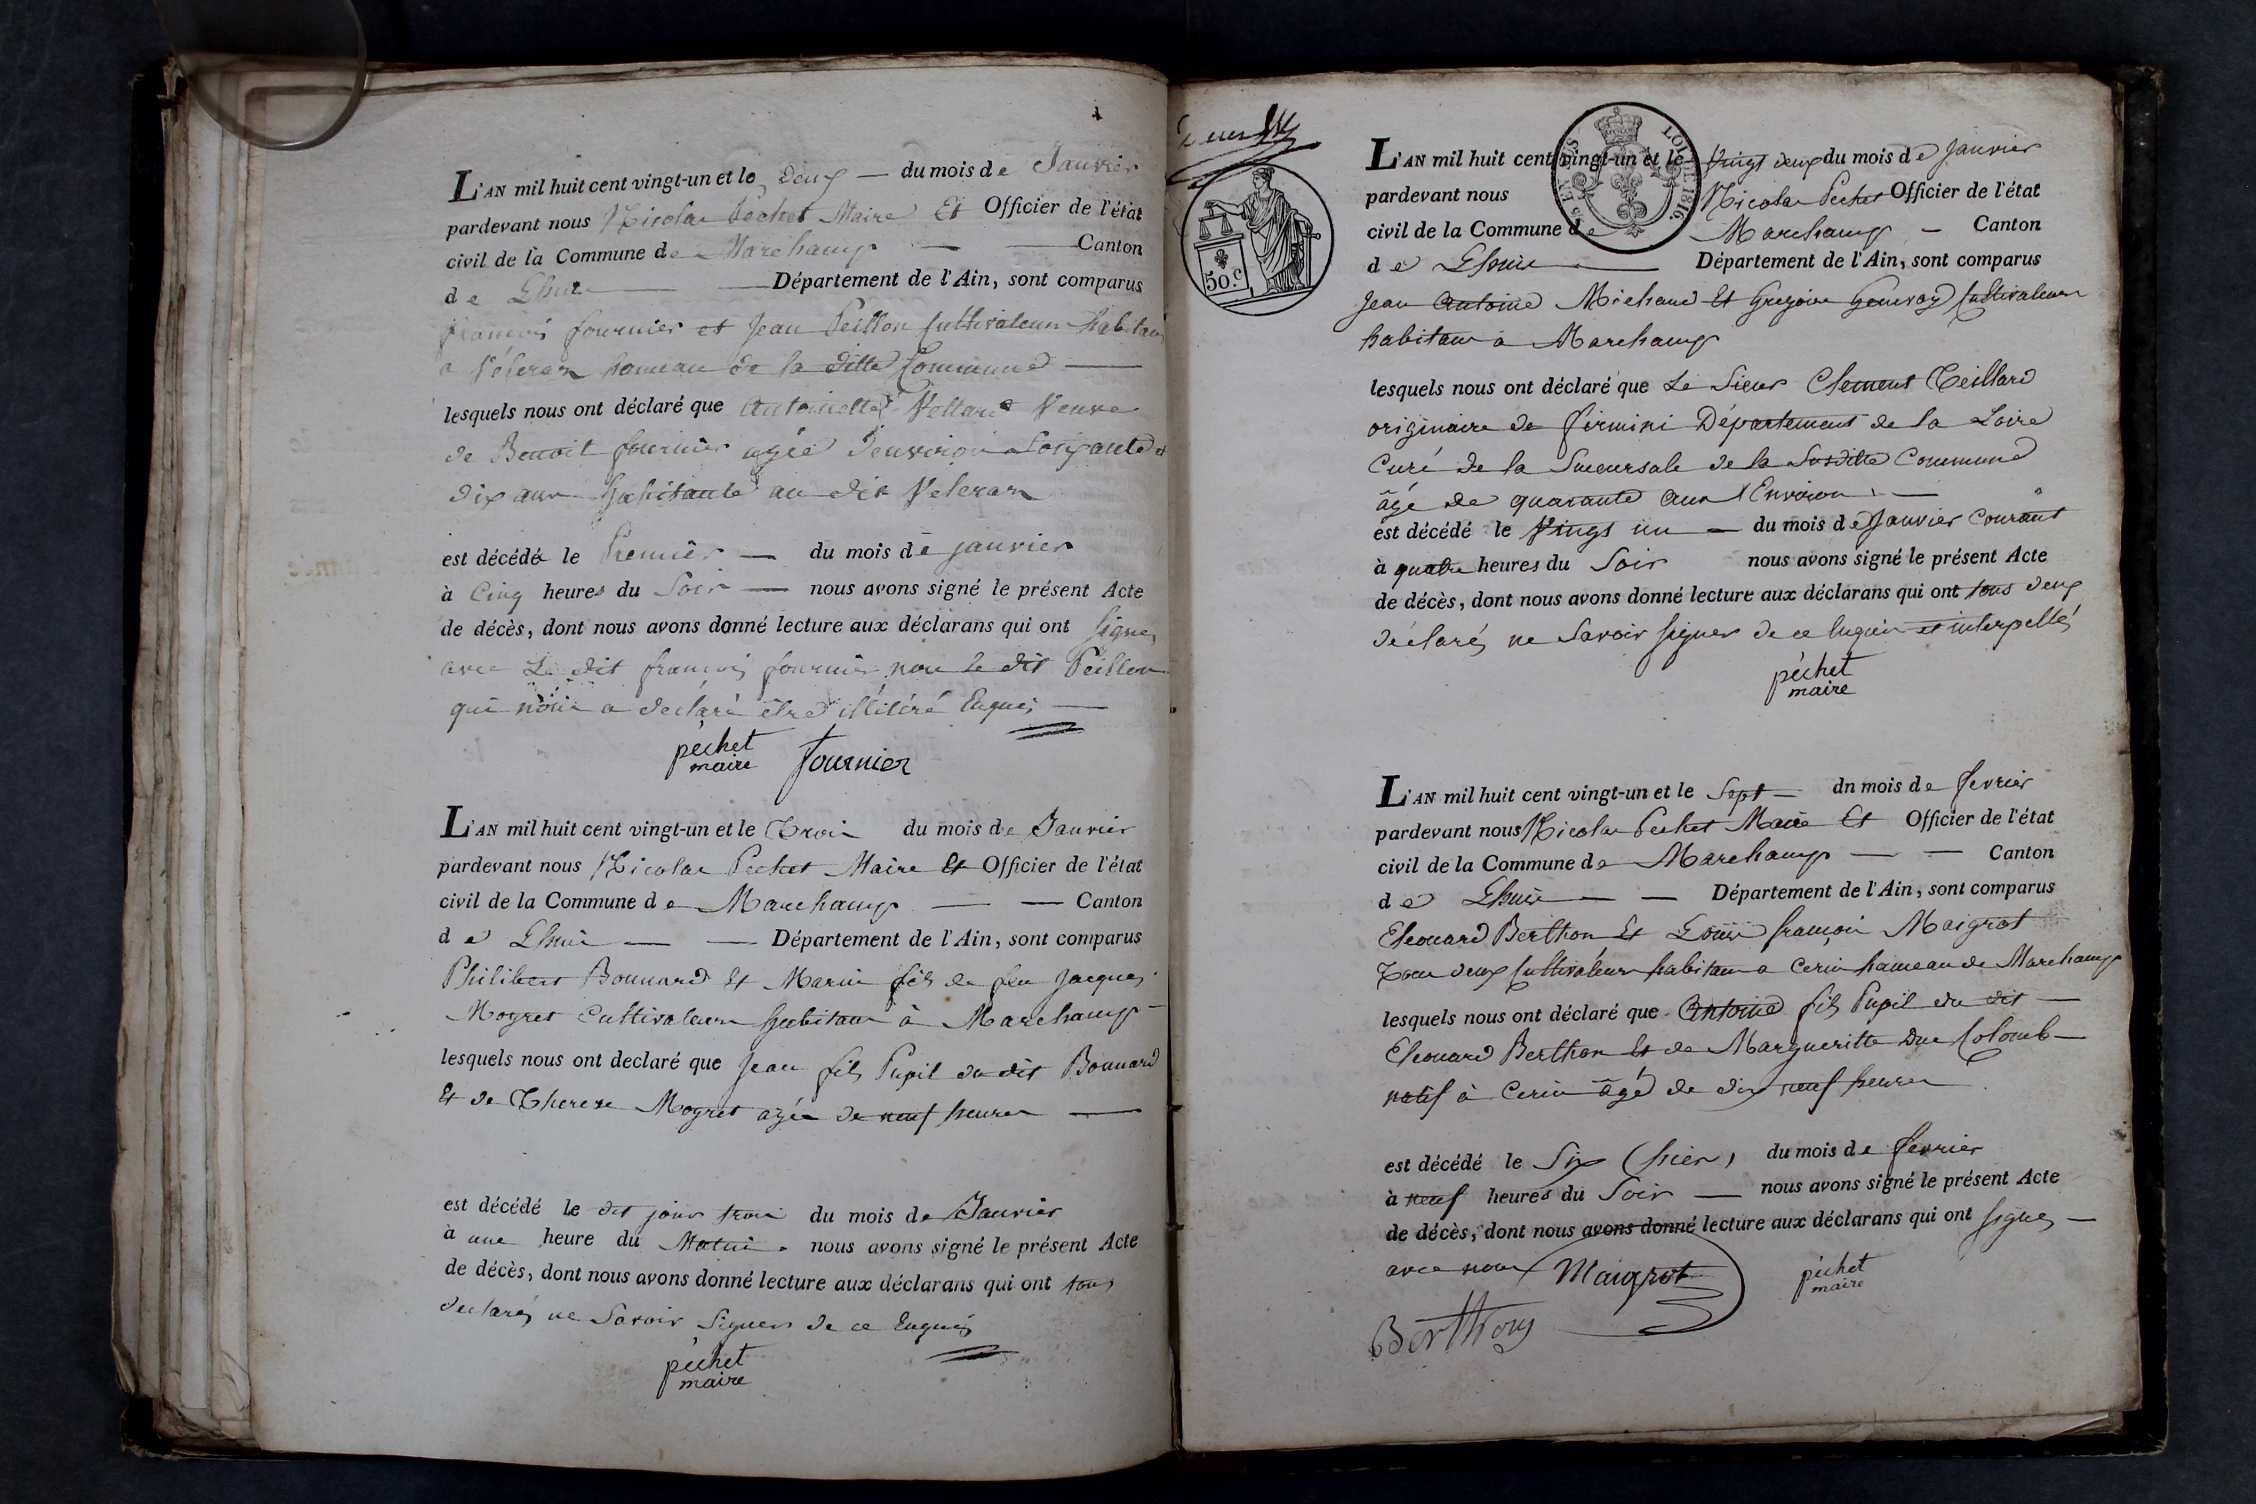 L'AN mil huit cent vingt-un et le deux — du mois de Janvier
pardevant nous Nicolas Pechet Maire Et Officier de l'état
civil de la Commune de Marchamp — Canton
de Lhuis — Département de l'Ain, sont comparus
françois fournier et Jean Peillon Cultivateurs habitans
a Véleran hameau de la ditte Commune —
lesquels nous ont déclaré que Antoinette Vettard Veuve
de Benoit fournier agée d'environ Soixante et
dix ans habitante au dit Veleran
est décédée le Premier — du mois de janvier
à Cinq heures du Soir — nous avons signé le présent Acte
de décès, dont nous avons donné lecture aux déclarans qui ont signé
avec Le dit françois fournier non le dit Peillon
qui nous a déclaré être illitéré Enquis —
péchet fournier
maire
L'AN mil huit cent vingt-un et le Trois du mois de Janvier
pardevant nous Nicolas Pechet Maire Et Officier de l'état
civil de la Commune de Marchamp — — Canton
de Lhuis — — Département de l'Ain, sont comparus
Philibert Bonnard Et Marin fils de feu Jacques
Mogret Cultivateurs habitans à Marchamp —
lesquels nous ont declaré que Jean fils Pupil du dit Bonnard
Et de Therese Mogret agée de neuf heures —
est décédé le dit jour trois du mois de Janvier
à une heure du Matin . nous avons signé le présent Acte
de décès, dont nous avons donné lecture aux déclarans qui ont tous
declarés ne Savoir Signer de ce Enquis
péchet
maire
50 c.
LOI DE 1816.
L'AN mil huit cent vingt-un et le Vingt deux du mois de Janvier
pardevant nous Nicolas Pechet Officier de l'état
civil de la Commune de Marchamp — Canton
de Lhuis — Département de l'Ain, sont comparus
Jean Antoine Michaud Et Gregoire Genevay Cultivateurs
habitans a Marchamp
lesquels nous ont déclaré que Le Sieur Clement Teillard
originaire de firmini Département de la Loire
Curé de la Succursale de la Susditte Commune
âgé de quarante ans Environ —
est décédé le Vingt un — du mois de Janvier Courant
à quatre heures du Soir nous avons signé le présent Acte
de décès, dont nous avons donné lecture aux déclarans qui ont tous deux
déclarés ne Savoir signer de ce Enquis et interpellés
péchet
maire
L'AN mil huit cent vingt-un et le Sept — dn mois de fevrier
pardevant nous Nicolas Pechet Maire Et Officier de l'état
civil de la Commune de Marchamp — — Canton
de Lhuis — — Département de l'Ain, sont comparus
Eleouard Berthon Et Louis françois Maigrot
Tous deux Cultivateurs habitans a Cerin hameau de Marchamp
lesquels nous ont déclaré que Antoine fils Pupil du dit —
Eleouard Berthon Et de Margueritte Duc Colomb —
natif à Cerin âgé de dix neuf heures
est décédé le Six (hier) du mois de fevrier
à neuf heures du Soir — nous avons signé le présent Acte
de décès, dont nous avons donné lecture aux déclarans qui ont signé —
avec nous Maigrot péchet
maire
Berthon